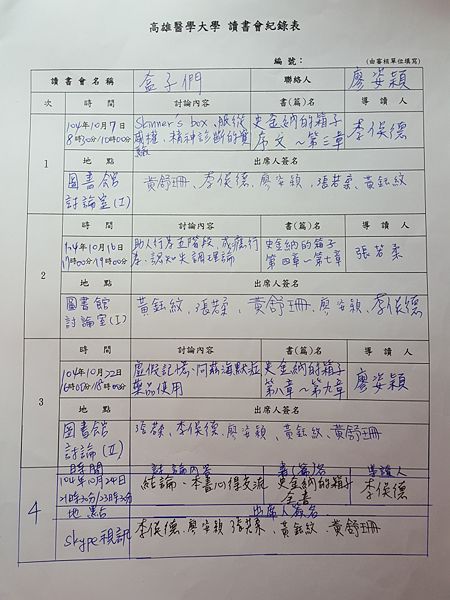 高雄醫學大學 讀書會紀錄表
編 號： (由審核單位填寫)
讀書會名稱 盒子們 聯絡人 廖姿穎
次 時 間 討論內容 書(篇)名 導 讀 人
1 104年10月7日 Skinner's box、服從 史金納的箱子 李俁德
8時30分/10時00分 威權、精神診斷的實驗 序文~第三章
地 點 出席人簽名
圖書館 黃舒珊、李俁德、廖姿穎、張若柔、黃鈺紋
討論室(I)
時 間 討論內容 書(篇)名 導 讀 人
2 104年10月16日 助人行為五階段、成癮行 史金納的箱子 張若柔
17時00分/19時00分 為、認知失調理論 第四章~第七章
地 點 出席人簽名
圖書館 黃鈺紋、張若柔、黃舒珊、廖姿穎、李俁德
討論室(I)
時 間 討論內容 書(篇)名 導 讀 人
3 104年10月22日 虛假記憶、阿茲海默症 史金納的箱子 廖姿穎
16時05分/18時00分 藥品使用 第八章~第九章
地 點 出席人簽名
圖書館 張若柔、李俁德、廖姿穎、黃鈺紋、黃舒珊
討論(II)
時間 討論內容 書(篇)名 導讀人
4 104年10月24日 結論、本書心得交流 史金納的箱子 李俁德
21時30分/23時30分 全書
地點 出席人簽名
Skype視訊 李俁德、廖姿穎、張若柔、黃鈺紋、黃舒珊